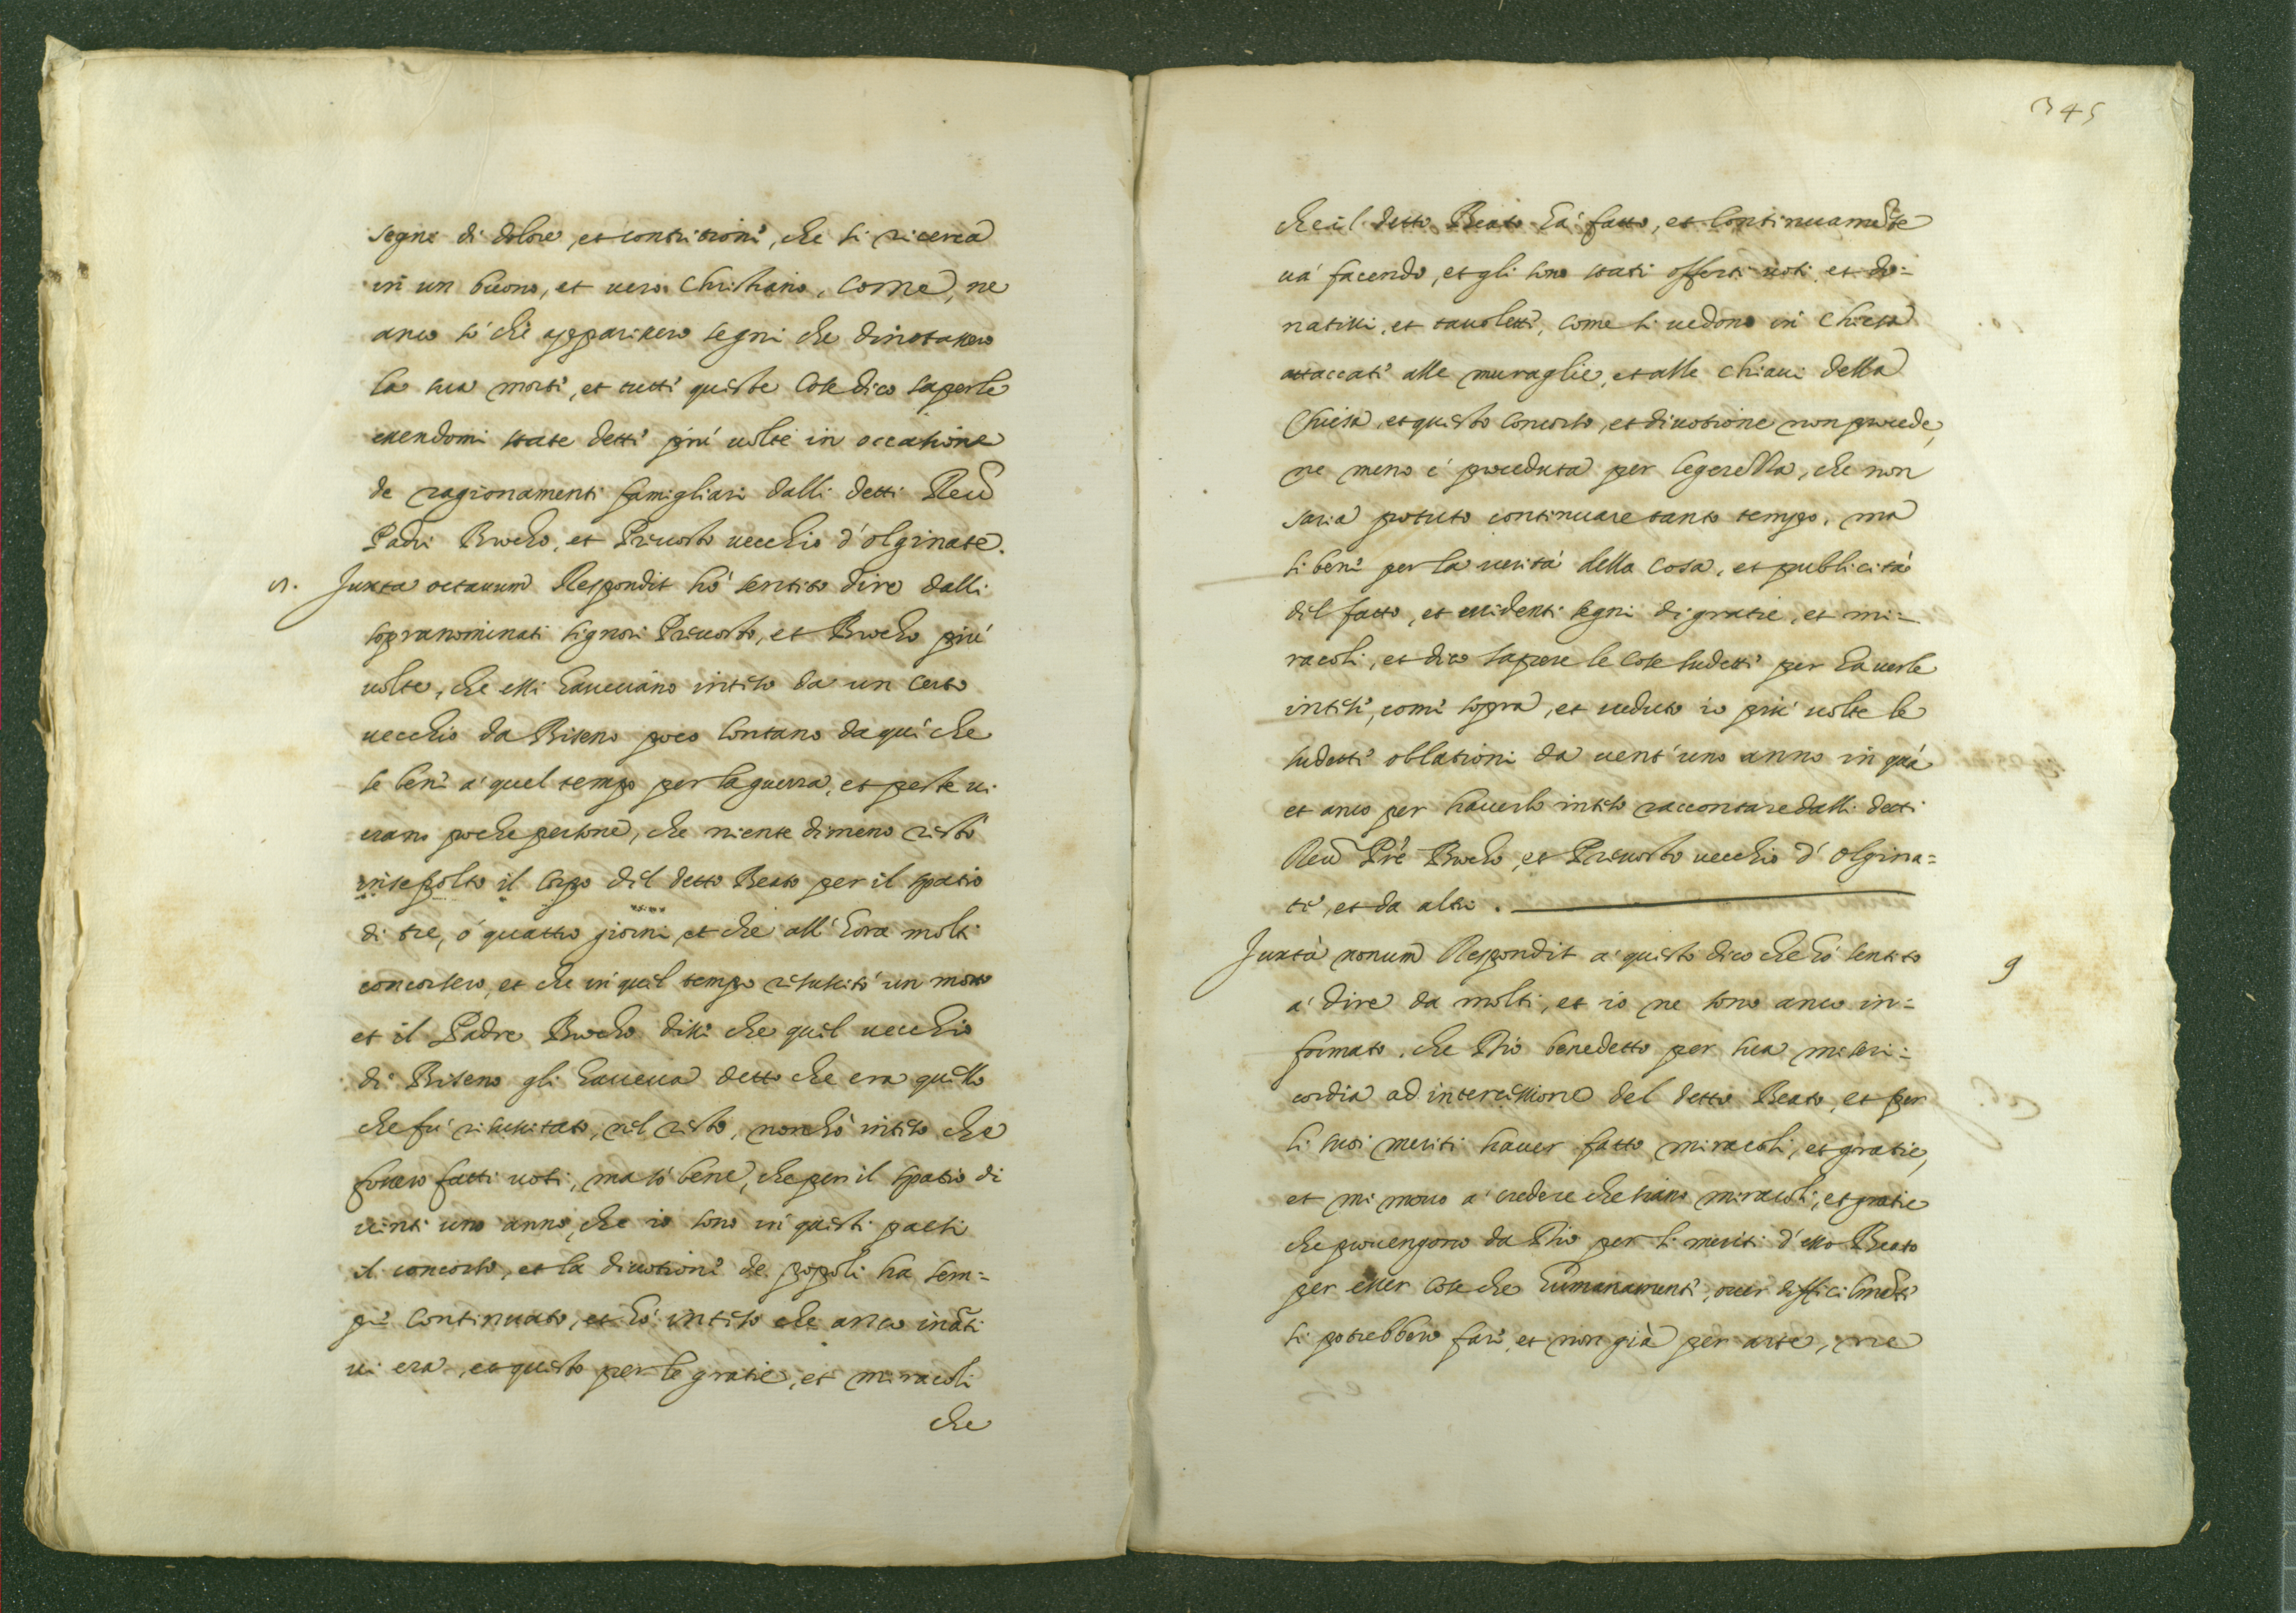 segni di dolore, et contritioni, che si ricerca
in un buono, et vero Christiano, come, ne
anco sò che apparissero segni che dinotassero
la sua morti, et tutti queste cose dico saperle
essendomi state detti più volte in occasione
de ragionamenti famigliari dalli detti Reu
Padri Brocho, et Prevosto vecchio d'olginate.
8. Juxta octauum Respondit hò sentito dire dalli
sopranominati signori Prevosto, et Brocho più
volte, che essi haueuano inteso da un certo
vecchio da Biseno poco lontano da qui che
se beni a quel tempo per la guerra, et peste vi
erano poche persone, che niente dimeno restò
insepolto il corpo dil detto Beato per il spatio
di tre, ó quattro giorni et che all'hora molti
concorsero, et che in quel tempo risuscitò un morto
et il Padre Brocho dissi che quel vecchio
di Biseno gli haueua detto che era quello
che fù risuscitato, nel resto, non hò inteso che
fossero fatti voti, ma sò bene, che per il spatio di
vinti uno anno, che io sono in questi paesi
il concorso, et la divotioni de popoli ha sem=
pri continuato, et hò inteso che anco ināti
vi era, et questo per le gratie, et miracoli
che
345
che il detto Beato hà fatto, et continuamēte
và facendo, et gli sono stati offerti voti et do=
natiui, et tauoletti, come si vedono in Chiesa
attaccati alle muraglie, et alle chiaui della
Chiesa, et questo concorso, et diuotione non procede,
ne meno è proceduta per legerezza, che non
saria potuto continuare tanto tempo, ma
si beni per la verità della cosa, et publicità
dil fatto, et evidenti segni di gratie, et mi=
racoli, et dico sapere le cose sudetti per hauerle
intesi, comi sopra, et veduto io più volte le
sudetti oblationi da vent'uno anno in quà
et anco per hauerlo inteso raccontare dalli detti
Reu Prè Brocho, et Prevosto vecchio d'olgina=
ti, et da altri.
Juxta nonum Respondit a questo dico che hò sentito 9
a dire da molti, et io ne sono anco in=
formato, che Dio benedetto per sua miseri=
cordia ad intercessione del detto Beato, et per
li suoi meriti hauer fatto miracoli, et gratie,
et mi movo a credere che siano miracoli, et gratie
che provengono da Dio per li meriti d'esso Beato
per esser cose che humanamenti, over difficilmēti
si potrebbero fari, et non già per arte, ne